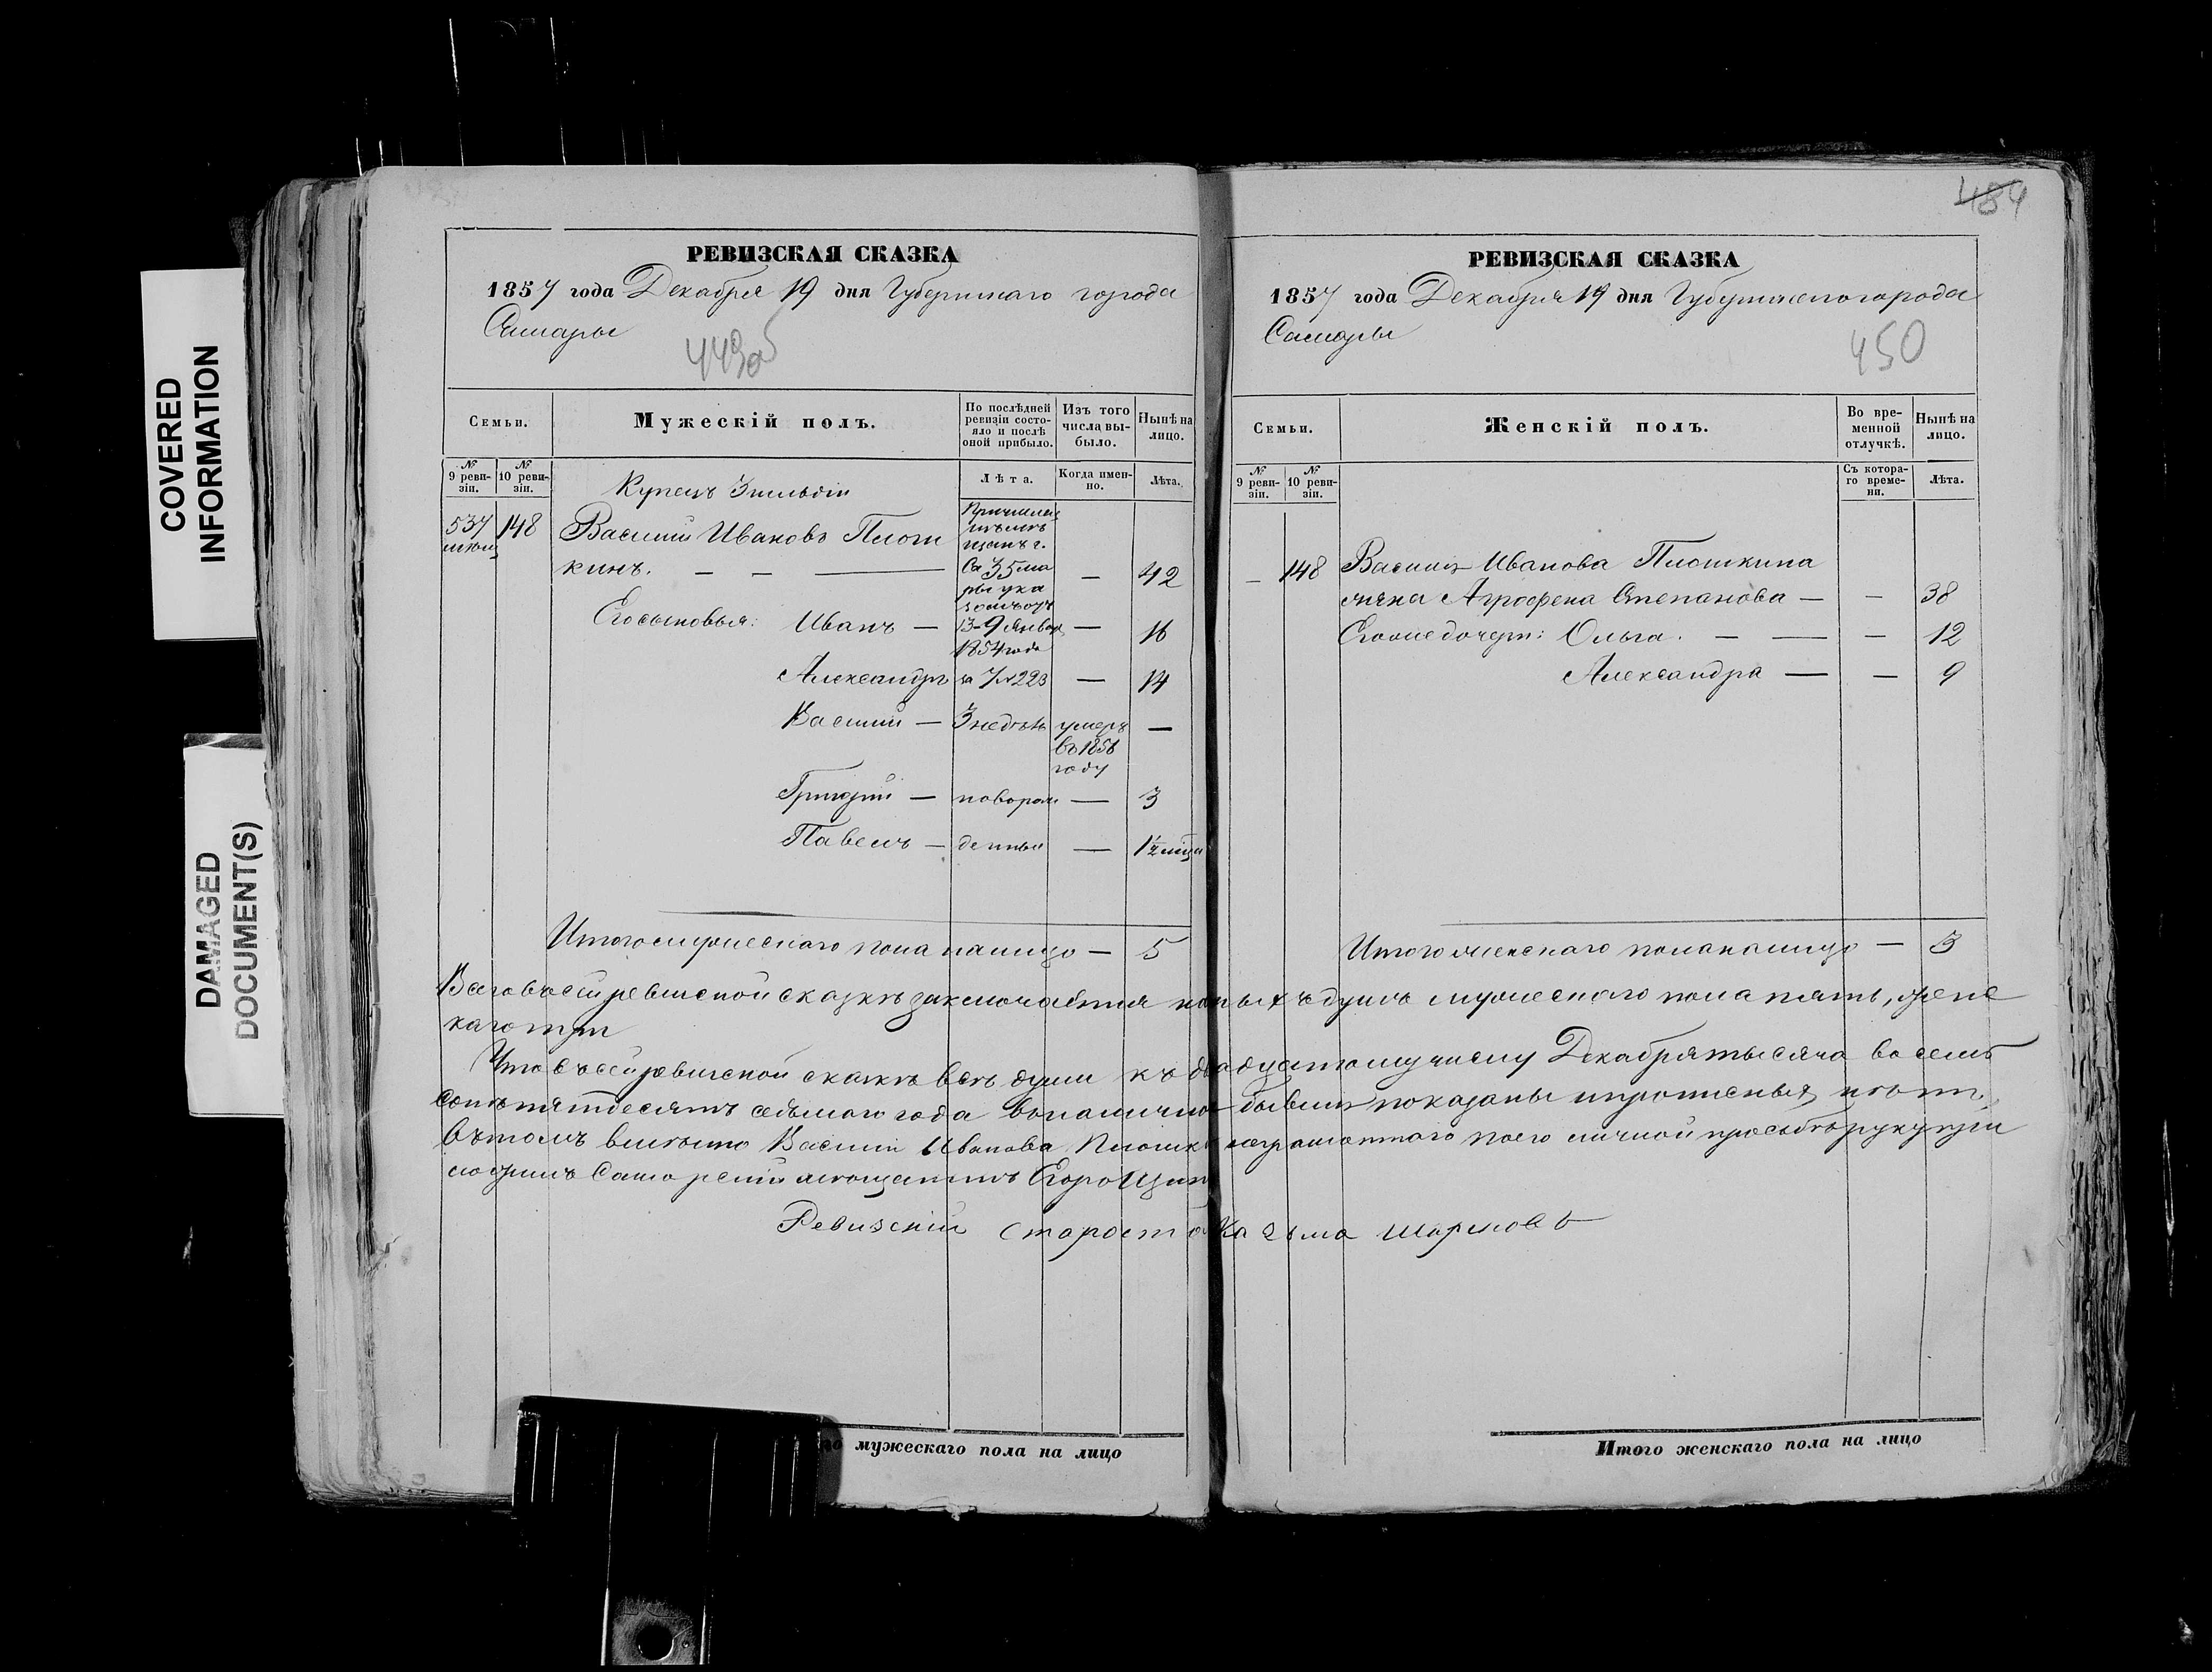 COVERED
INFORMATION
DAMAGED
DOCUMENT(S)
РЕВИЗСКАЯ СКАЗКА
1857 года Декабря 19 дня Губернскаго города
Самары
449об
Семьи.
Мужескій полъ.
По послѣдней
ревизіи состо-
яло и послѣ
оной прибыло.
Изъ того
числа вы-
было.
Нынѣ на
лицо.
№
9 реви-
зіи.
№
10 реви-
зіи.
Лѣта.
Когда имен-
но.
Лѣта.
Купецъ 3 гильдіи
537
148
Василій Ивановъ Плюш
кинъ. — — —
42
Его сыновья: Иванъ —
13-9 Января
1854 года
—
16
Александръ
за №223
—
14
Василій — 3 недѣль
умеръ
въ 1856
году
—
Григорій — новорож — 3
Павелъ — денныя — 1½ мѣця
Итого мужескаго пола на лицо — 5
РЕВИЗСКАЯ СКАЗКА
1857 года Декабря 19 дня Губернскаго города
Самары
484
450
Семьи.
Женскій полъ.
Во вре-
менной
отлучкѣ.
Нынѣ на
лицо.
№
9 реви-
зіи.
№
10 реви-
зіи.
Съ котора-
го време-
ни.
Лѣта.
— 148 Василья Иванова Плюшкина
жена Агрофена Степанова — — 38
Его же дочери: Ольга. — — — 12
Александра — — 9
Итого женскаго пола на лицо — 3
Всего въ сей ревиской сказкѣ заключается душъ мужескаго пола пять, женс
каго три
Что въ сей ревиской сказкѣ всѣ души къ двадцатому числу Декабря тысяча восемь
сотъ пятдесятъ седьмаго года въ наличности бывшия показаны и прописныхъ нѣтъ
въ томъ вмѣсто Василія Иванова Плюшк неграмотнаго по его личной прозьбѣ руку при
ложилъ Самарскій мѣщанинъ Егоръ
Ревизскій староста Козьма
го мужескаго пола на лицо
Итого женскаго пола на лицо